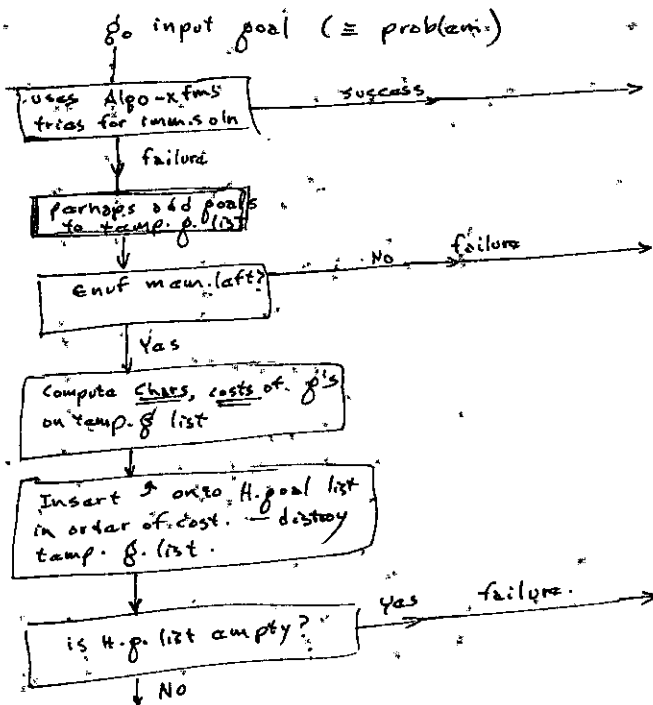 g₀ input goal (≡ problem)
uses Algo-xfms
tries for imm. soln
success
failure
perhaps add goals
to temp. g. list
Enuf mem. left?
No
failure
Yes
Compute Chars, costs of g's
on temp. g list
Insert ↑ onto H. goal list
in order of cost. — destroy
temp. g. list.
is H.g. list empty?
Yes
failure.
No